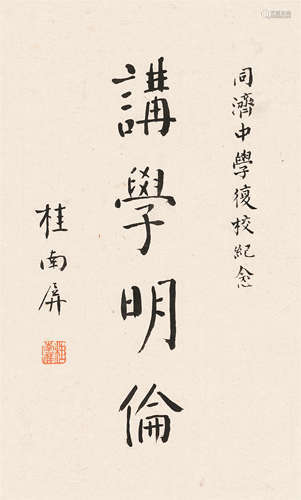 同濟中學復校紀念
講學明倫
桂南屏